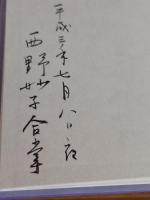 平成三年七月八日記
西野妙子合掌